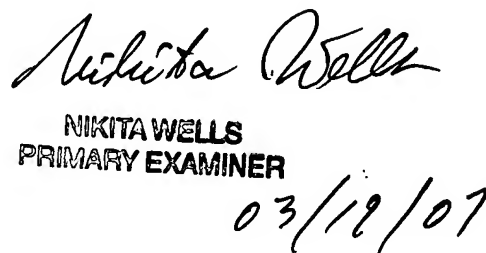 Nikita Wells
NIKITA WELLS
PRIMARY EXAMINER
03/19/07